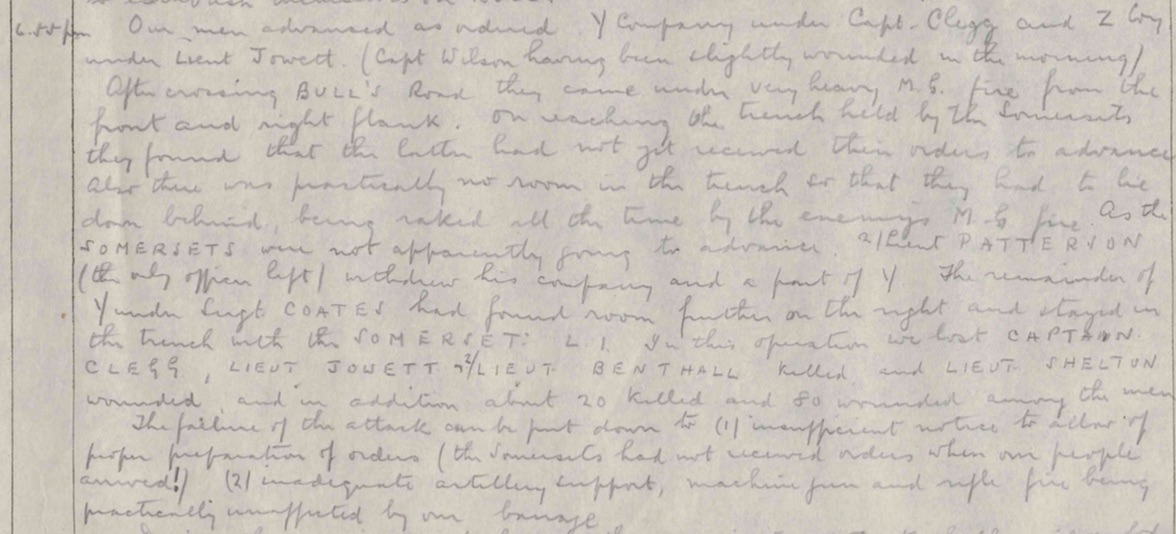 6.55 pm Our men advanced as ordered Y Company under Capt. Clegg and Z Coy
under Lieut Jowett. (Capt Wilson having been slightly wounded in the morning)
After crossing BULL'S Road they came under very heavy M.G. fire from the
front and right flank. On reaching the trench held by the Somersets
they found that the latter had not yet received their orders to advance
Also there was practically no room in the trench so that they had to lie
down behind, being raked all the time by the enemy's M.G fire. As the
SOMERSETS were not apparently going to advance. 2/Lieut PATTERSON
(the only officer left) withdrew his company and a part of Y The remainder of
Y under Sergt COATES had found room further on the right and stayed in
the trench with the SOMERSET: L.I. In this operation we lost CAPTAIN.
CLEGG, LIEUT JOWETT 2/LIEUT BENTHALL killed and LIEUT SHELTON
wounded, and in addition about 20 killed and 80 wounded among the men
The failure of the attack can be put down to (1) insufficient notice to allow of
proper preparation of orders (the Somersets had not received orders when our people
arrived!) (2) inadequate artillery support, machine gun and rifle fire being
practically unaffected by our barrage